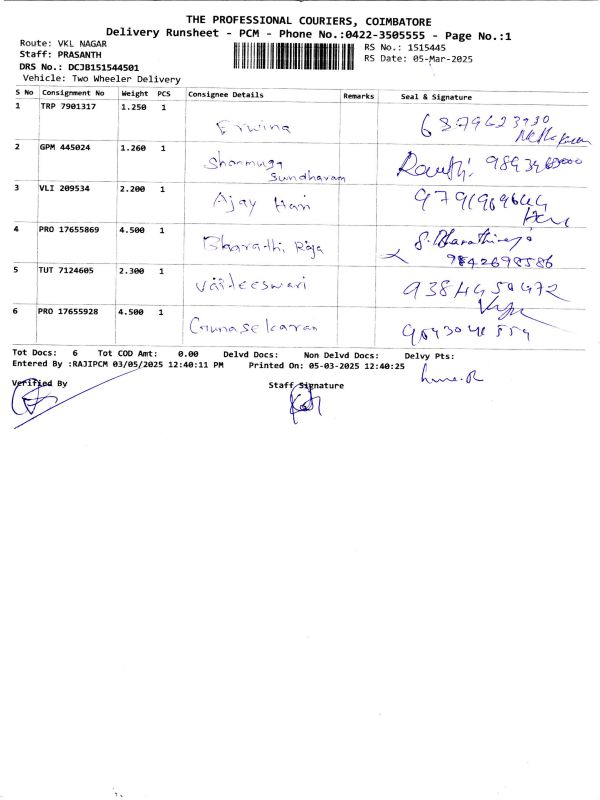 THE PROFESSIONAL COURIERS, COIMBATORE
Delivery Runsheet - PCM - Phone No.:0422-3505555 - Page No.:1
Route: VKL NAGAR
RS No.: 1515445
Staff: PRASANTH
RS Date: 05-Mar-2025
DRS No.: DCJB151544501
Vehicle: Two Wheeler Delivery
S No Consignment No Weight PCS Consignee Details Remarks Seal & Signature
1 TRP 7901317 1.250 1
Erwina
2 GPM 445024 1.260 1
Shanmuga
Sundharam
3 VLI 209534 2.200 1
Ajay Hari
4 PRO 17655869 4.500 1
Bharathi Raja S. Bharathiraja
9842698586
5 TUT 7124605 2.300 1
Vaideeswari 9384450472
6 PRO 17655928 4.500 1
Gunasekaran
Tot Docs: 6 Tot COD Amt: 0.00 Delvd Docs: Non Delvd Docs: Delvy Pts:
Entered By :RAJIPCM 03/05/2025 12:40:11 PM Printed On: 05-03-2025 12:40:25
Verified By Staff Signature